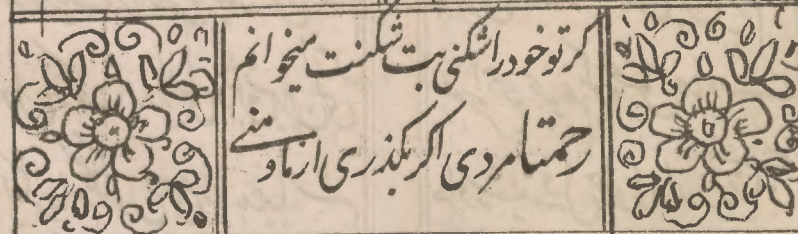 کر تو خود را شکنی بت شکنت میخوانم
رحمتا مردی اکر بگذری از ما و منے